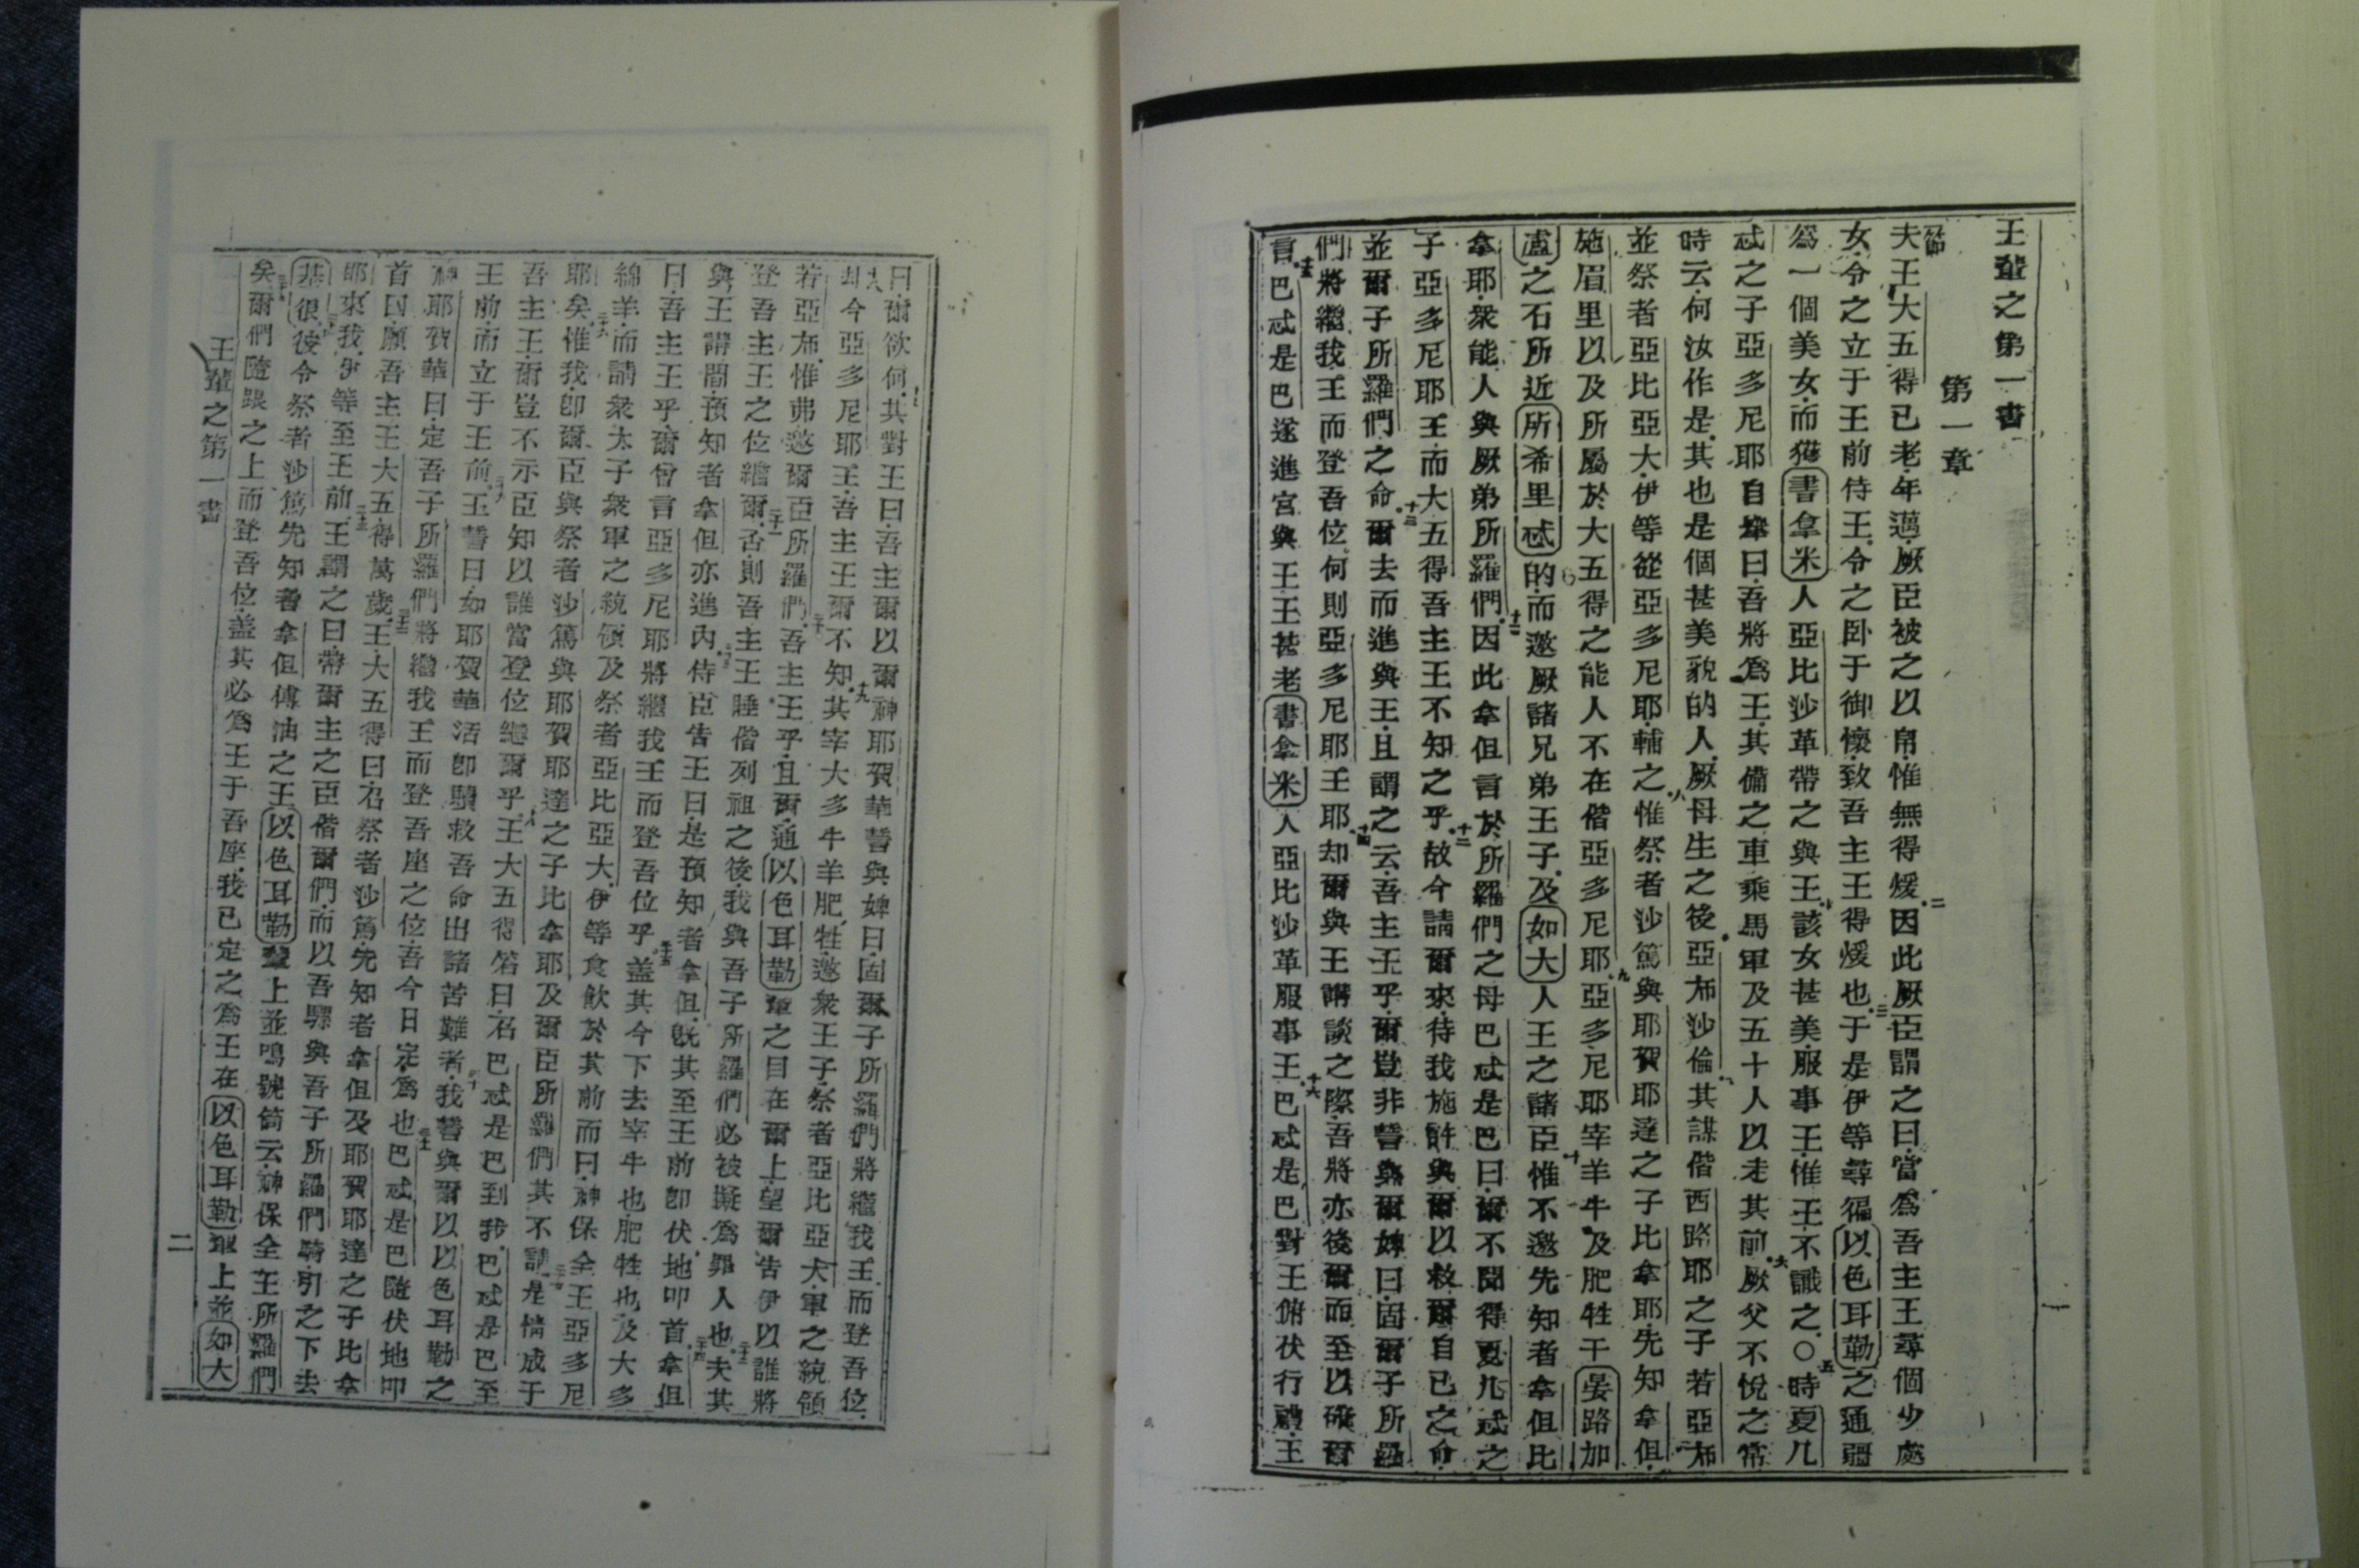 王輩之第一書
第一章
節夫王大五得已老年邁厥臣被之以帛惟無得煖二因此厥臣謂之曰當爲吾主王尋個少處
女令之立于王前侍王令之卧于御懷致吾主王得煖也三于是伊等尋徧以色耳勒之通疆
爲一個美女而獲書拿米人亞比沙革帶之與王該女甚美服事王惟王不識之○五時夏凡
忒之子亞多尼耶自舉曰吾將爲王其備之車乘馬軍及五十人以走其前六厥父不悅之常
時云何汝作是其也是個甚美貌的人厥母生之後亞布沙倫其謀偕西路耶之子若亞布
並祭者亞比亞大伊等從亞多尼耶輔之八惟祭者沙篤與耶賀耶達之子比拿耶先知拿但
施眉里以及所屬於大五得之能人不在偕亞多尼耶九亞多尼耶宰羊牛及肥牲于晏路加
盧之石所近所希里忒的而邀厥諸兄弟王子及如大人王之諸臣十惟不邀先知者拿但比
拿耶衆能人與厥弟所羅們十一因此拿但言於所羅們之母巴忒是巴曰爾不聞得夏凡忒之
子亞多尼耶王而大五得吾主王不知之乎十二故今請爾來待我施計與爾以救爾自己之命
並爾子所羅們之命十三爾去而進與王且謂之云吾主王乎爾豈非誓與爾婢曰固爾子所羅
們將繼我王而登吾位何則亞多尼耶王耶十四却爾與王講談之際吾將亦後爾而至以確爾
言十五巴忒是巴遂進宮與王王甚老書拿米人亞比沙革服事王十六巴忒是巴對王俯伏行禮王
曰爾欲何其對王曰吾主爾以爾神耶賀華誓與婢曰固爾子所羅們將繼我王而登吾位
十八却今亞多尼耶王吾主王爾不知十九其宰大多牛羊肥牲邀衆王子祭者亞比亞大軍之統領
若亞布惟弗邀爾臣所羅們二十吾主王乎且爾通以色耳勒輩之目在爾上望爾告伊以誰將
登吾主王之位繼爾二十一否則吾主王睡偕列祖之後我與吾子所羅們必被擬爲罪人也二十二夫其
與王講間預知者拿但亦進內二十三侍臣告王曰是預知者拿但旣其至王前卽伏地叩首二十四拿但
曰吾主王乎爾曾言亞多尼耶將繼我王而登吾位乎二十五盖其今下去宰牛也肥牲也及大多
綿羊而請衆太子衆軍之統領及祭者亞比亞大伊等食飲於其前而曰神保全王亞多尼
耶矣二十六惟我卽爾臣與祭者沙篤與耶賀耶達之子比拿耶及爾臣所羅們其不請二十七是情成于
吾主王爾豈不示臣知以誰當登位繼爾乎二十八王大五得答曰召巴忒是巴到我巴忒是巴至
王前而立于王前二十九王誓曰如耶賀華活卽贖救吾命出諸苦難者三十我誓與爾以以色耳勒之
神耶賀華曰定吾子所羅們將繼我王而登吾座之位吾今日定爲也三十一巴忒是巴隨伏地叩
首曰願吾主王大五得萬歲三十二王大五得曰召祭者沙篤先知者拿但及耶賀耶達之子比拿
耶來我伊等至王前三十三王謂之曰帶爾主之臣偕爾們而以吾騾與吾子所羅們騎引之下去
基很彼令祭者沙篤先知者拿但傅油之王以色耳勒輩上並鳴號筒云神保全王所羅們
矣三十五爾們隨跟之上而登吾位盖其必爲王于吾座我已定之爲王在以色耳勒輩上並如大
王輩之第一書
二